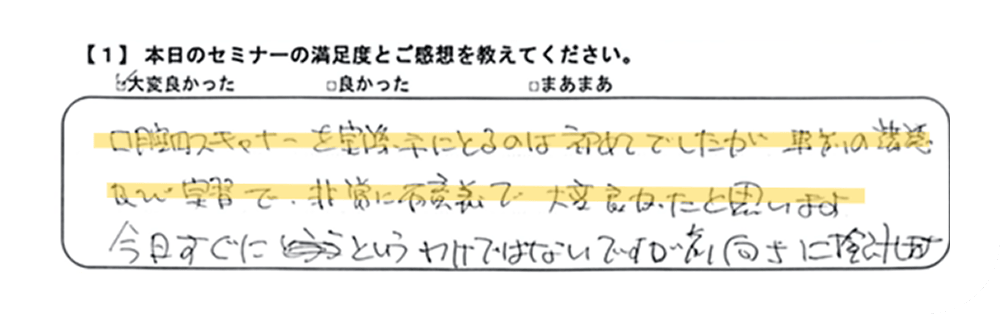 【1】本日のセミナーの満足度とご感想を教えてください。
☑大変良かった □良かった □まあまあ
口腔内スキャナーを実際手にとるのは初めてでしたが 先生の講話
及び実習で、非常に有意義で 大変良かったと思います
今日すぐにというわけではないですが前向きに検討します